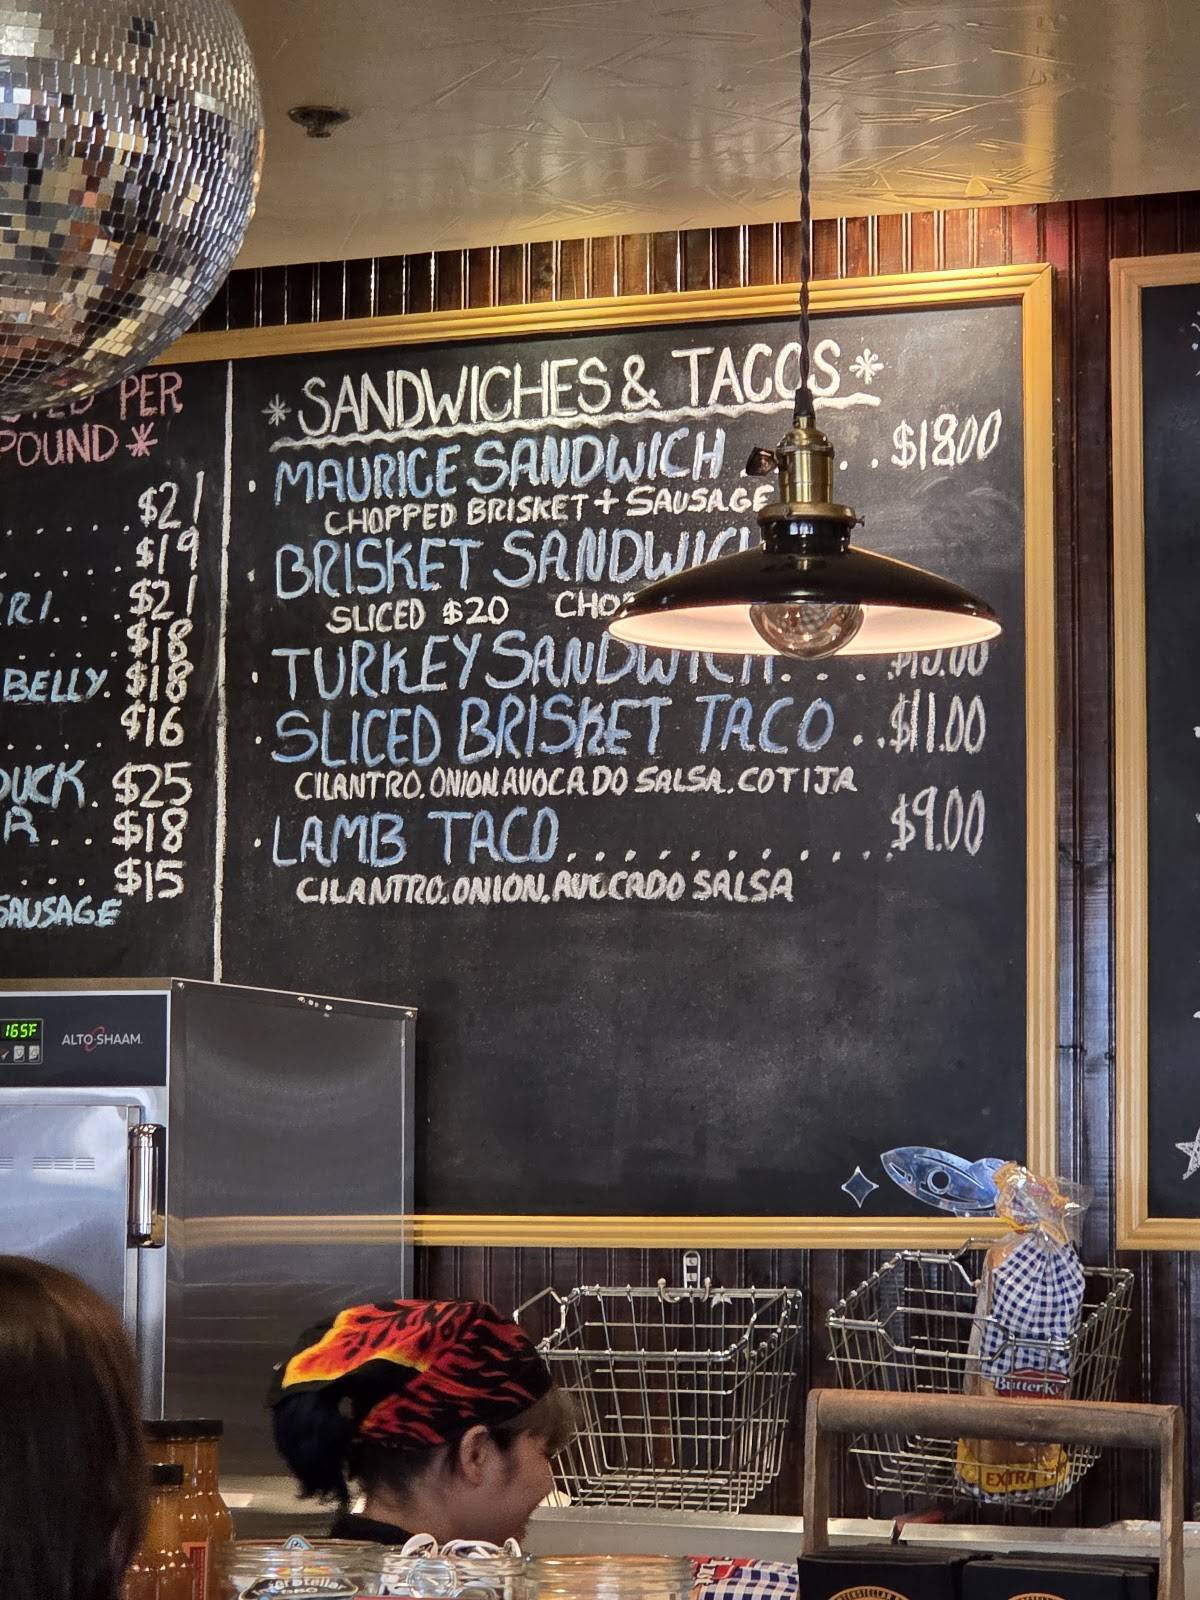 PER
POUND *
. . . . . . $21
. . . . . . $19
RRI. . . $21
. . . . . . $18
BELLY. $18
. . . . . $16
DUCK. $25
R . . . $18
. . . . $15
SAUSAGE
* SANDWICHES & TACOS *
· MAURICE SANDWICH . . . . $18.00
CHOPPED BRISKET + SAUSAGE
· BRISKET SANDWICH
SLICED $20
· TURKEY SANDWICH. . . .
· SLICED BRISKET TACO . . $11.00
CILANTRO. ONION AVOCADO SALSA. COTIJA
· LAMB TACO . . . . . . . . . . . . $9.00
CILANTRO. ONION. AVOCADO SALSA
165F
ALTO-SHAAM
ButterK
EXTRA
Interstellar
BBQ